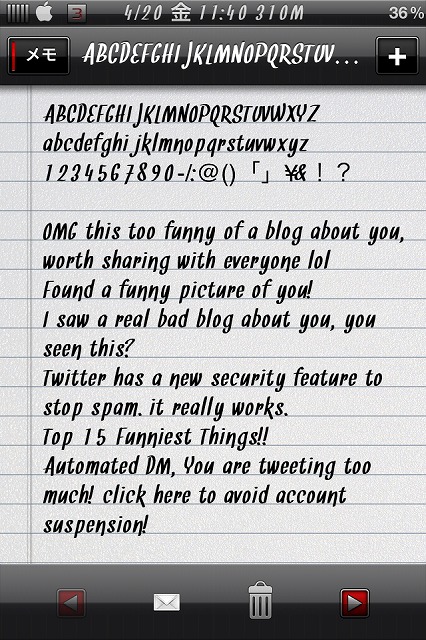 3 4/20 金 11:40 310M 36%
メモ ABCDEFGHIJKLMNOPQRSTUV... +
ABCDEFGHIJKLMNOPQRSTUVWXYZ
abcdefghijklmnopqrstuvwxyz
1234567890-/:@()「」¥&！？
OMG this too funny of a blog about you,
worth sharing with everyone lol
Found a funny picture of you!
I saw a real bad blog about you, you
seen this?
Twitter has a new security feature to
stop spam. it really works.
Top 15 Funniest Things!!
Automated DM, You are tweeting too
much! click here to avoid account
suspension!